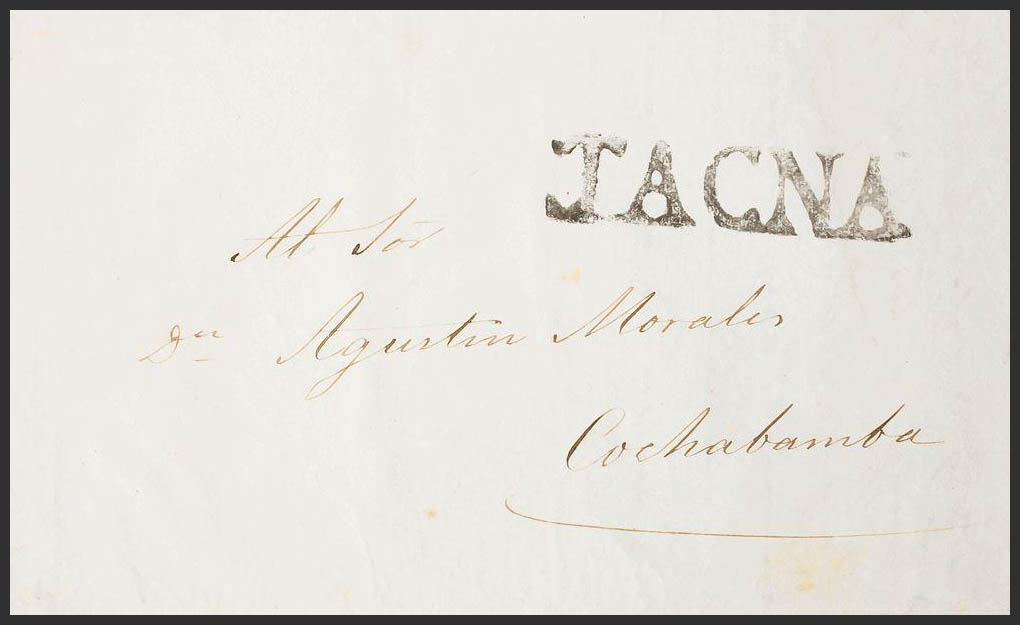 TACNA
Al Sōr
Dn Agustin Morales
Cochabamba